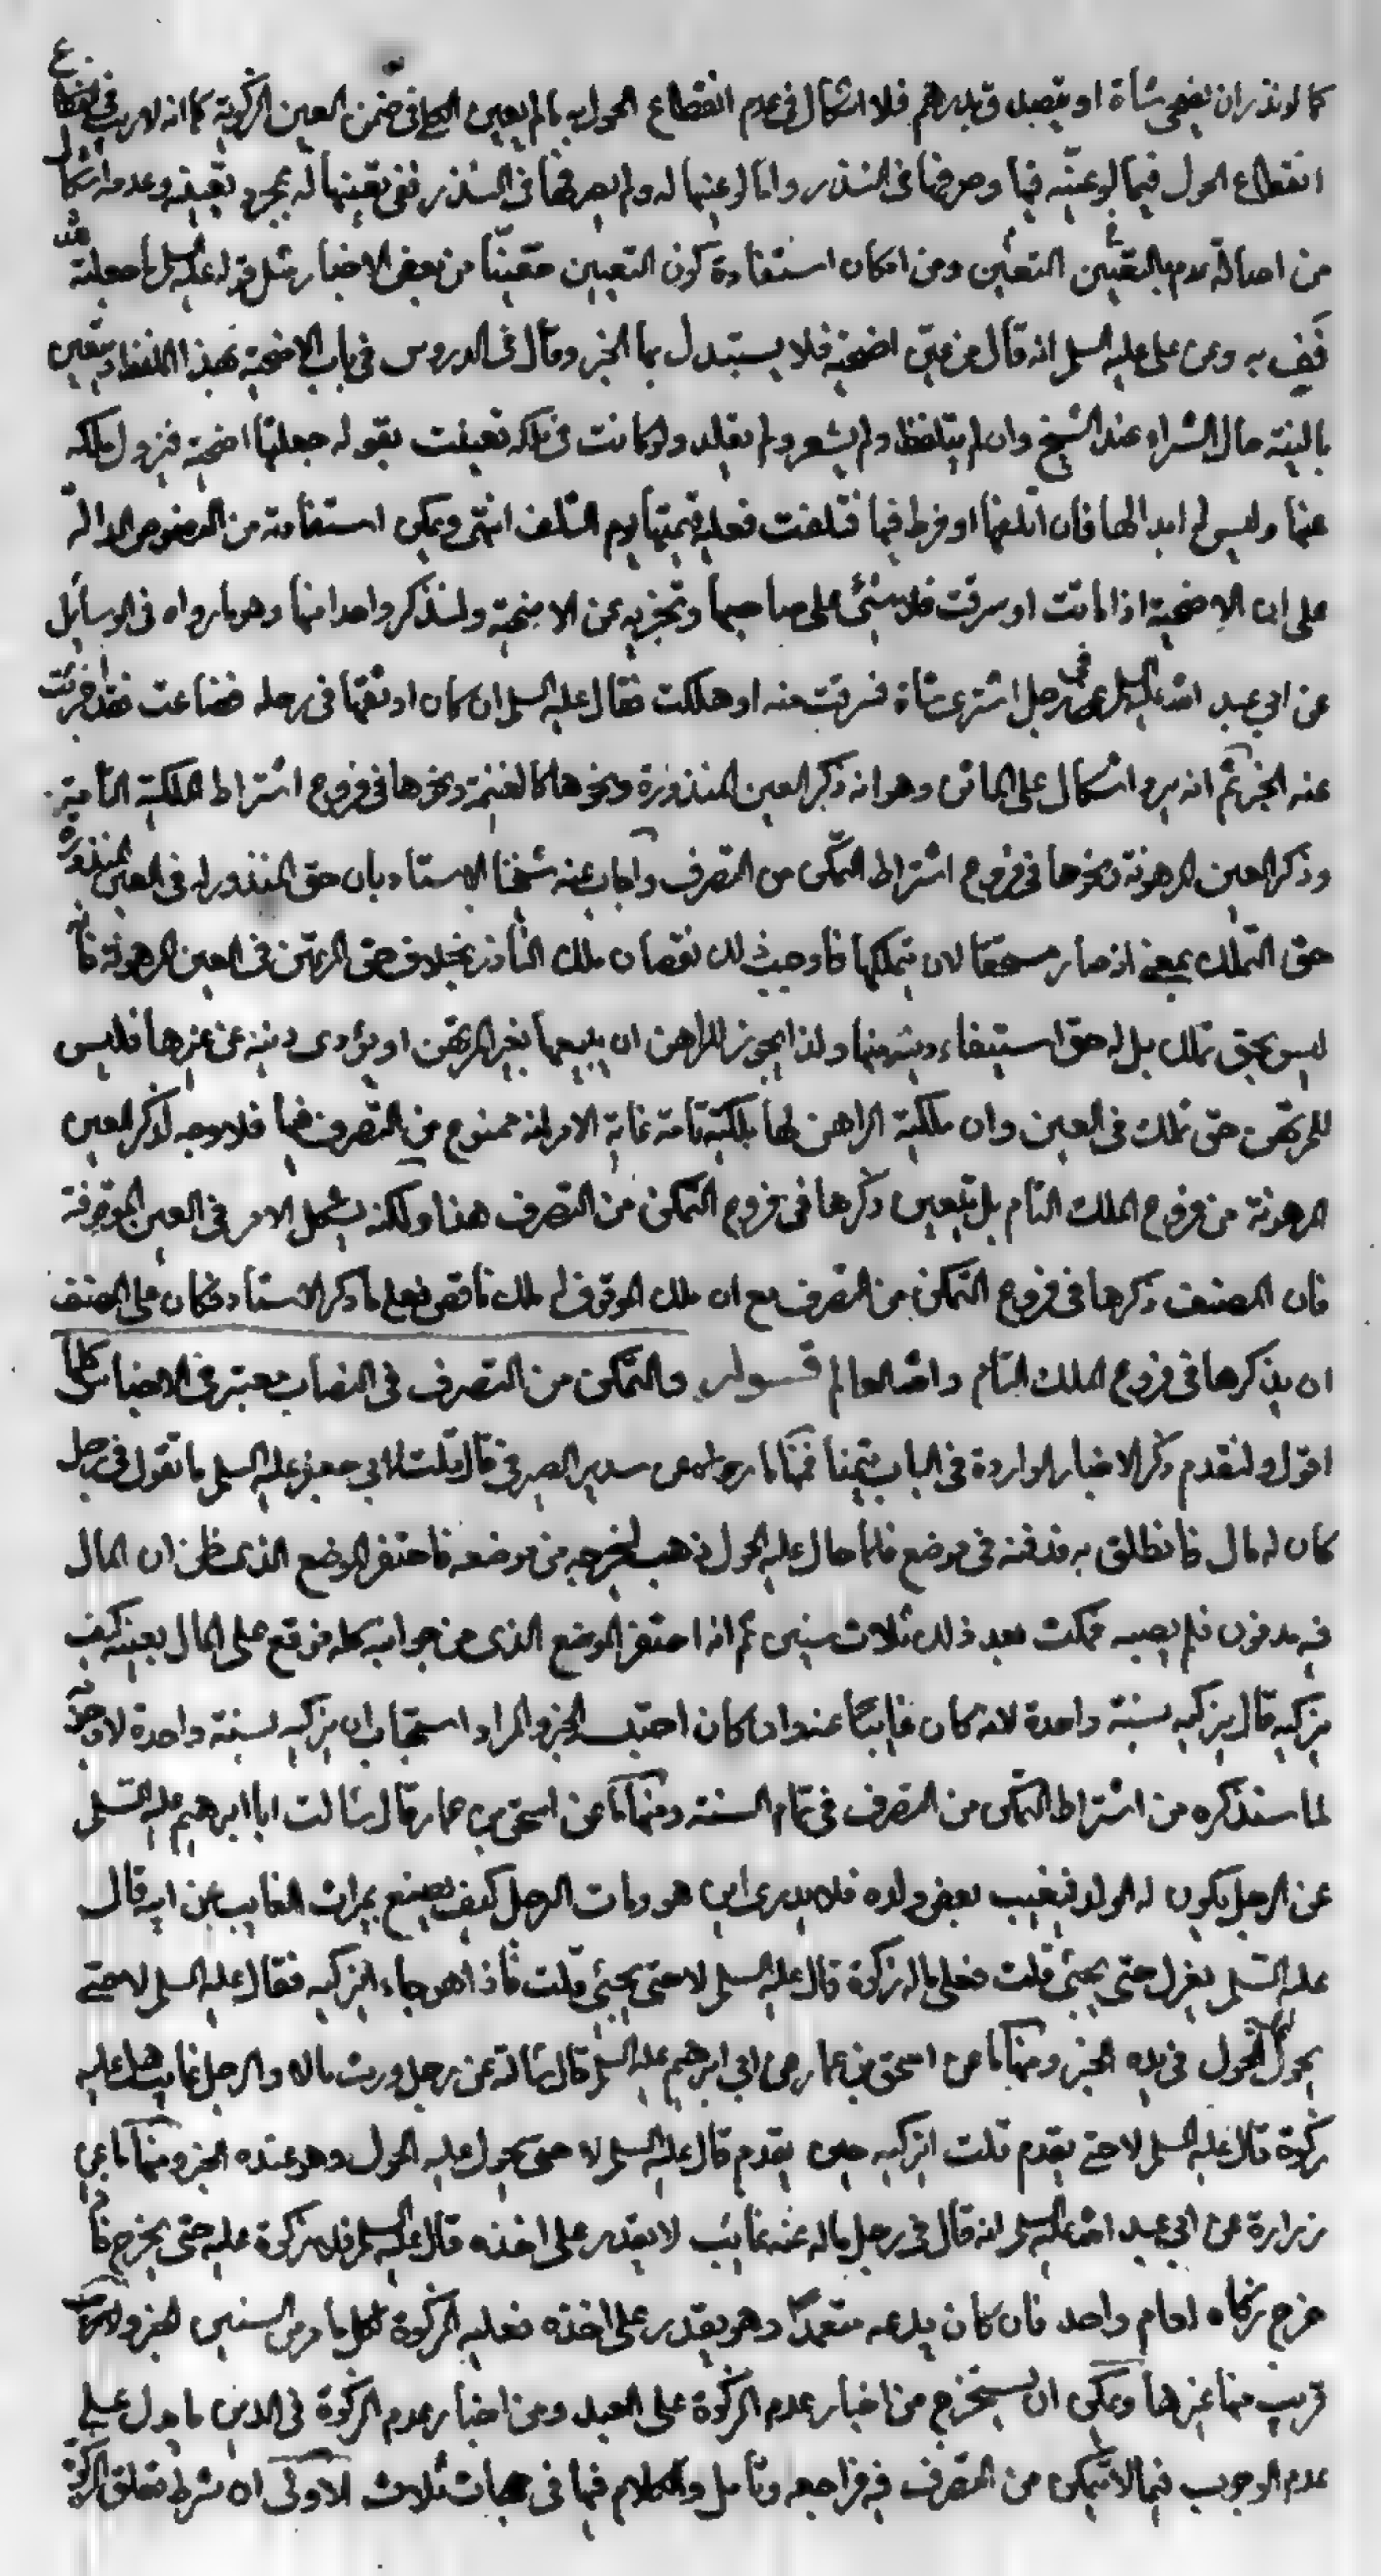 كما لو نذر ان يضحى شاة او يتصدق بدرهم فلا اشكال فى عدم انقطاع الحول به ما لم يعين الكلى فى ضمن العين الزكوية كما انه لا ريب فى انقطاع
انقطاع الحول فيما لو عينه فيها وصرفها فى النذر واما لو عينها له ولم يصرفها فى النذر ففى تعينها له بمجرد تعيينه وعدمه اشكال
من اصالة عدم بالتعيين التعين ومن امكان استفادة كون التعيين معينا من بعض الاخبار مثل قوله عليه السلم ما جعلته لله
فف به وعن على عليه السلم انه قال من عين اضحية فلا يستبدل بها الخبر وقال فى الدروس فى باب الاضحية بهذا اللفظ وتتعين
بالنية حال الشراء عند الشيخ وان لم يتلفظ ولم يشعر ولم يقلد ولو كانت فى ملكه تعينت بقوله جعلتها اضحية فيزول ملكه
عنها وليس له ابدالها فان اتلفها او فرط فيها فتلفت فعليه قيمتها يوم التلف انتهى ويمكن استفادته من النصوص الدالة
على ان الاضحية اذا ماتت او سرقت فلا شئ على صاحبها وتجزيه عن الاضحية ولنذكر واحدا منها وهو ما رواه فى الوسائل
عن ابى عبد الله عليه السلم فى رجل اشترى شاة فسرقت منه او هلكت فقال عليه السلم ان كان اوثقها فى رحله فضاعت فقد اجزئت
عنه الخبر ثم انه يرد اشكال على الماتن وهو انه ذكر العين المنذورة ونحوها كالغنيمة ونحوها فى فروع اشتراط الملكية التامة
وذكر العين المرهونة ونحوها فى فروع اشتراط التمكن من التصرف واجاب عنه شيخنا الاستاد بان حق المنذور له فى العين المنذورة
حق التملك بمعنى انه صار مستحقا لان يتملكها فاوجب ذلك نقصان ملك الناذر بخلاف حق المرتهن فى العين المرهونة فانه
ليس بحق تملك بل له حق استيفاء دينه منها ولذا يجوز للراهن ان يبيعها بخبر المرتهن او يؤدى دينه عن غيرها فليس
للمرتهن حق تملك فى العين وان ملكية الراهن لها ملكية تامة غاية الامر انه ممنوع من التصرف فيها فلا وجه لذكر العين
المرهونة من فروع الملك التام بل يتعين ذكرها فى فروع التمكن من التصرف هذا ولكنه يشكل الامر فى العين الموقوفة
فان المصنف ذكرها فى فروع التمكن من التصرف مع ان ملك الموقوف له ملك ناقص فعلى ما ذكر الاستاد فكان على المصنف
ان يذكرها فى فروع الملك التام والله العالم قوله والتمكن من التصرف فى النصاب معتبر فى الاجناس كلها
اقول ولنقدم ذكر الاخبار الواردة فى الباب تيمنا فمنها ما رواه عن سدير الصيرفى قال قلت لابى جعفر عليه السلم ما تقول فى رجل
كان له مال فانطلق به فدفنه فى موضع فلما حال عليه الحول ذهب ليخرجه من موضعه فاحتفر الموضع الذى ظن ان المال
فيه مدفون فلم يصبه فمكث بعد ذلك ثلاث سنين ثم انه احتفر الموضع الذى من جوانبه كله فوقع على المال بعينه كيف
يزكيه قال يزكيه لسنة واحدة لانه كان غايبا عنه وان كان احتبسه الخبر والمراد استحباب ان يزكيه لسنة واحدة لا وجوبه
لما سنذكره من اشتراط التمكن من التصرف فى تمام السنة ومنها ما عن اسحق بن عمار قال سالت ابا ابرهيم عليه السلم
عن الرجل يكون له الولد فيغيب بعض ولده فلا يدرى اين هو ومات الرجل كيف يصنع بميراث الغايب من ابيه قال
عليه السلم يعزل حتى يجئ قلت فعلى ماله زكوة قال عليه السلم لا حتى يجئ قلت فاذا هو جاء ايزكيه فقال عليه السلم لا حتى
يحول عليه الحول فى يده الخبر ومنها ما عن اسحق بن عمار عن ابى ابرهيم عليه السلم قال سالته عن رجل ورث مالا والرجل غايب هل عليه
زكوة قال عليه السلم لا حتى يقدم قلت ايزكيه حين يقدم قال عليه السلم لا حتى يحول عليه الحول وهو عنده الخبر ومنها ما عن
زرارة عن ابى عبد الله عليه السلم انه قال فى رجل ماله عنه غائب لا يقدر على اخذه قال عليه السلم فلا زكوة عليه حتى يخرج فاذا
خرج زكاه لعام واحد فان كان يدعه متعمدا وهو يقدر على اخذه فعليه الزكوة لكل ما مر من السنين الخبر
قريب منها غيرها ويمكن ان يستخرج من اخبار عدم الزكوة على العبد ومن اخبار عدم الزكوة فى الدين ما يدل على
عدم الوجوب فيما لا يتمكن من التصرف فيه فراجعه وتامل والكلام فيها فى جهات ثلاث الاولى ان شرط تعلق الزكوة